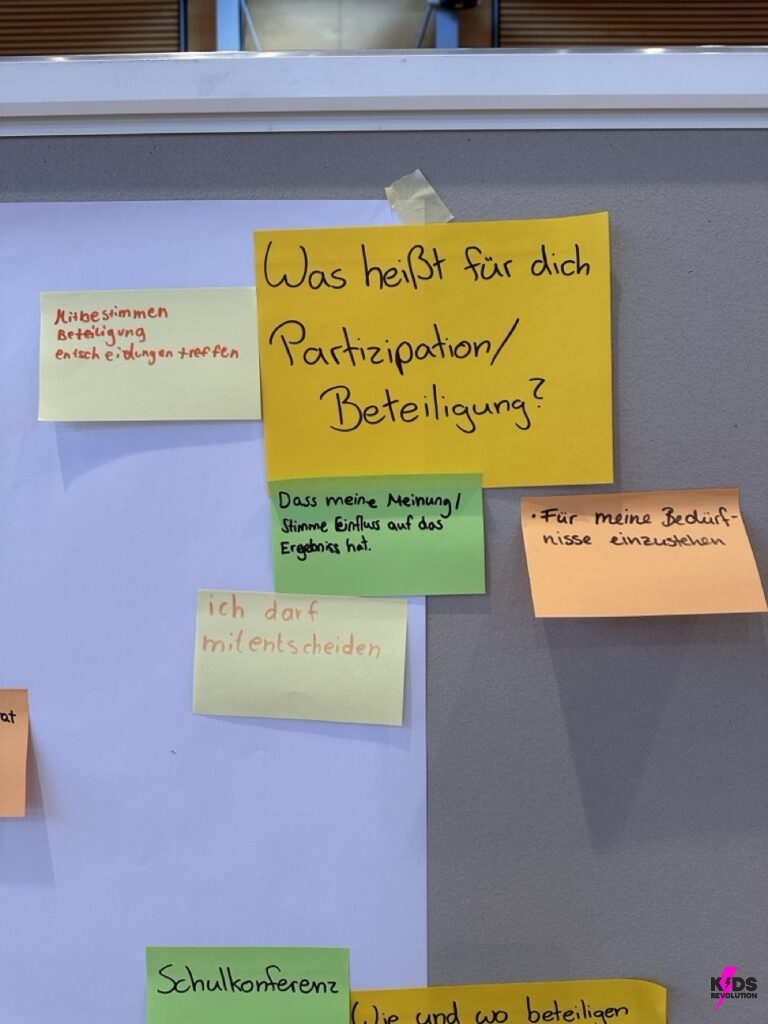 Was heißt für dich
Partizipation/
Beteiligung?
Mitbestimmen
Beteiligung
entscheidungen treffen
Dass meine Meinung/
Stimme Einfluss auf das
Ergebniss hat.
• Für meine Bedürf-
nisse einzustehen
ich darf
mitentscheiden
at
Schulkonferenz
Wie und wo beteiligen
KIDS
REVOLUTION